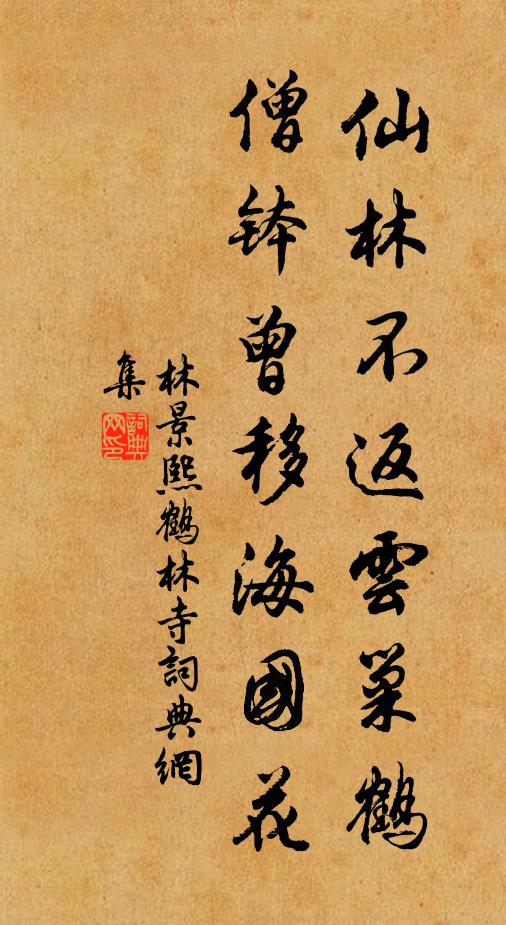 仙林不返雲巢鶴
僧鉢曾移海國花
林景熙鶴林寺詞典網
集
詞典
网印